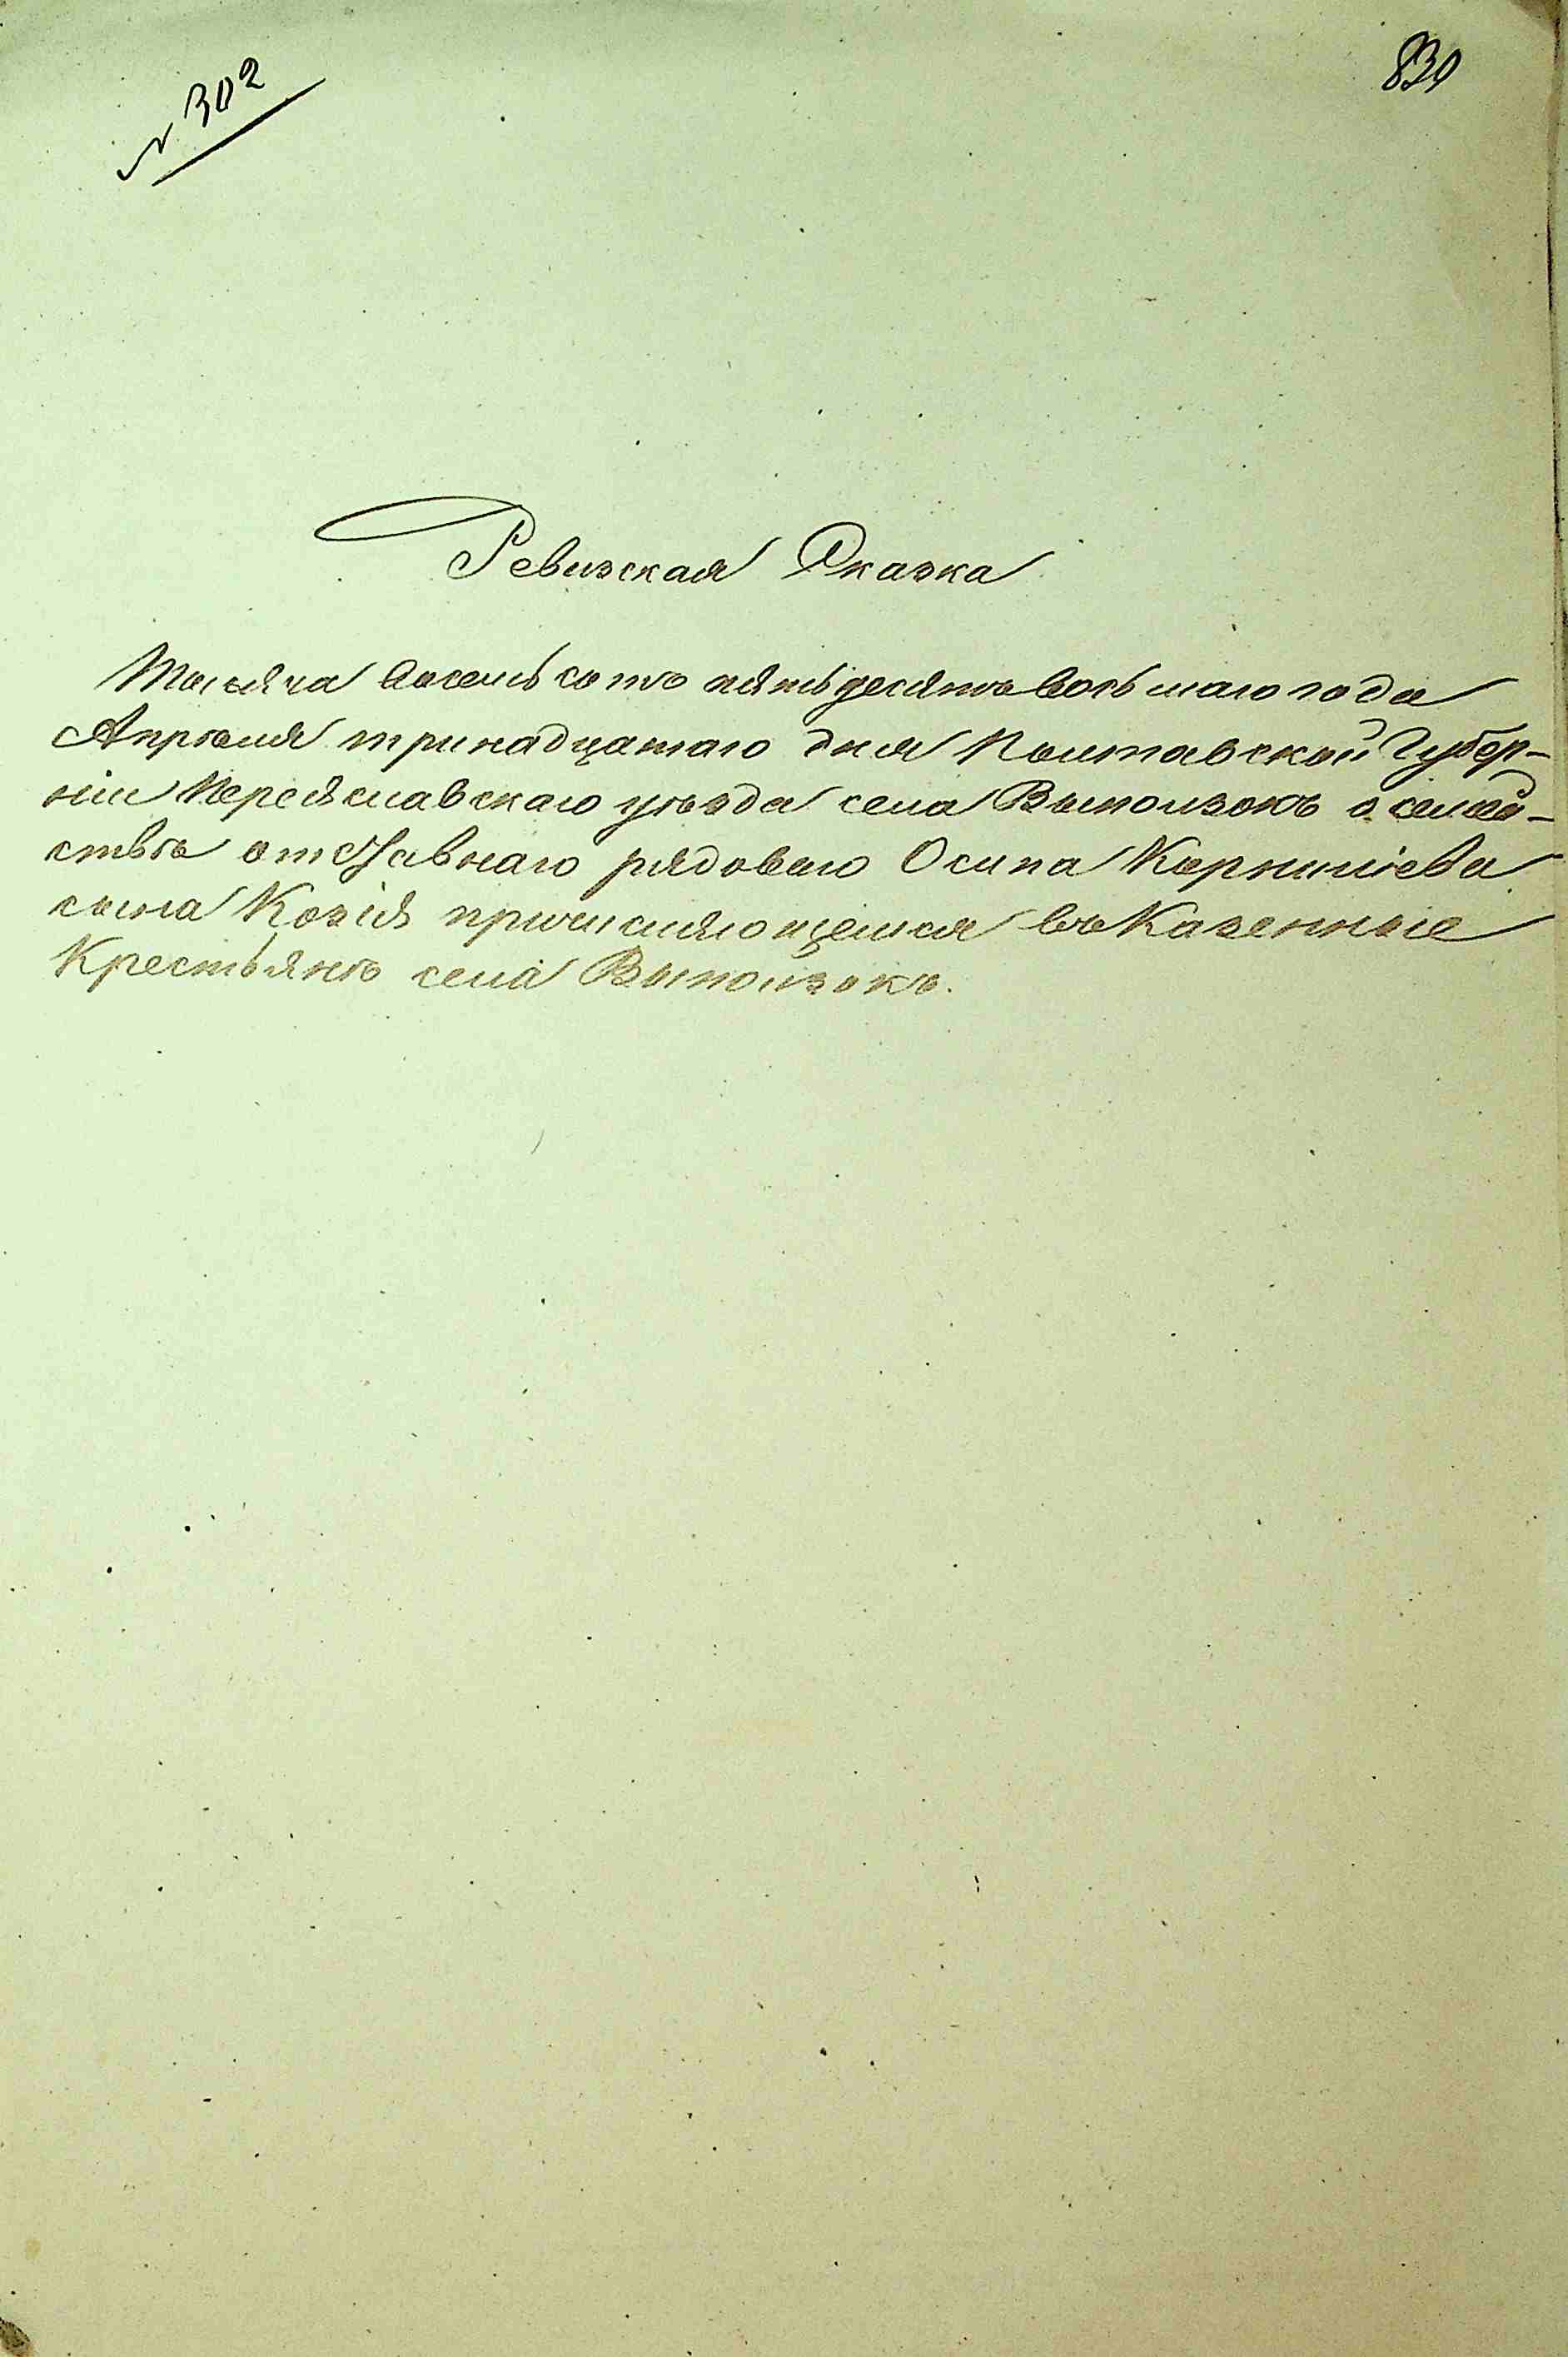 № 302
839
Ревизская Сказка
Тысяча восемь сотъ пятьдесятъ восьмаго года
Апрѣля тринадцатаго дня Полтавской Губер-
ніи Переяславскаго уѣзда села Выползокъ о семей-
ствѣ отставнаго рядоваго Осипа Корнилiева
сына Козія причисляющемся въ Казенные
Крестьянѣ села Выползокъ.